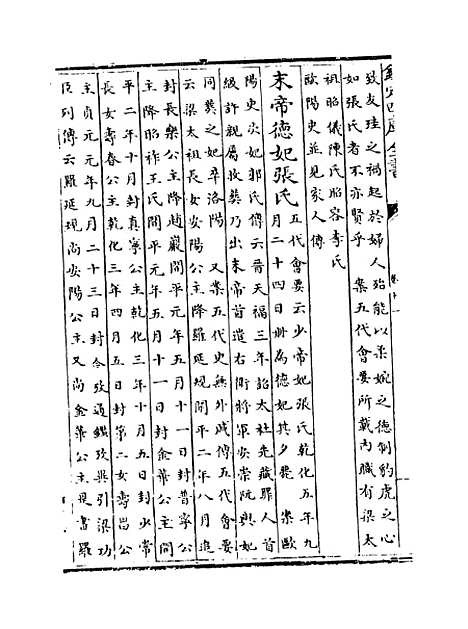 欽定四庫全書
致友珪之禍起於婦人殆能以柔婉之德制豹虎之心
如張氏者不亦賢乎 案五代會要所載內職有梁太
祖昭儀陳氏昭容李氏
歐陽史並見家人傳
末帝德妃張氏 五代會要云少帝妃張氏乾化五年九
月二十四日冊為德妃其夕薨 案歐
陽史次妃郭氏傳云晉天福三年詔太社先藏罪人首
級許親屬收葬乃出末帝首遣右衛將軍安崇阮與妃
同葬之妃卒洛陽 又案五代史無外戚傳五代會要
云梁太祖長女安陽公主降羅延規開平二年八月追
封長樂公主降趙巖開平元年五月十一日封普寧公
主降昭祚王氏開平元年五月十一日封金華公主開
平二年十月封真寧公主乾化三年十月五日封少帝
長女壽春公主乾化三年四月五日封第二女壽昌公
主貞元元年九月二十三日封今考通鑑考異引梁功
臣列傳云羅延規尚安陽公主又尚金華公主是書羅